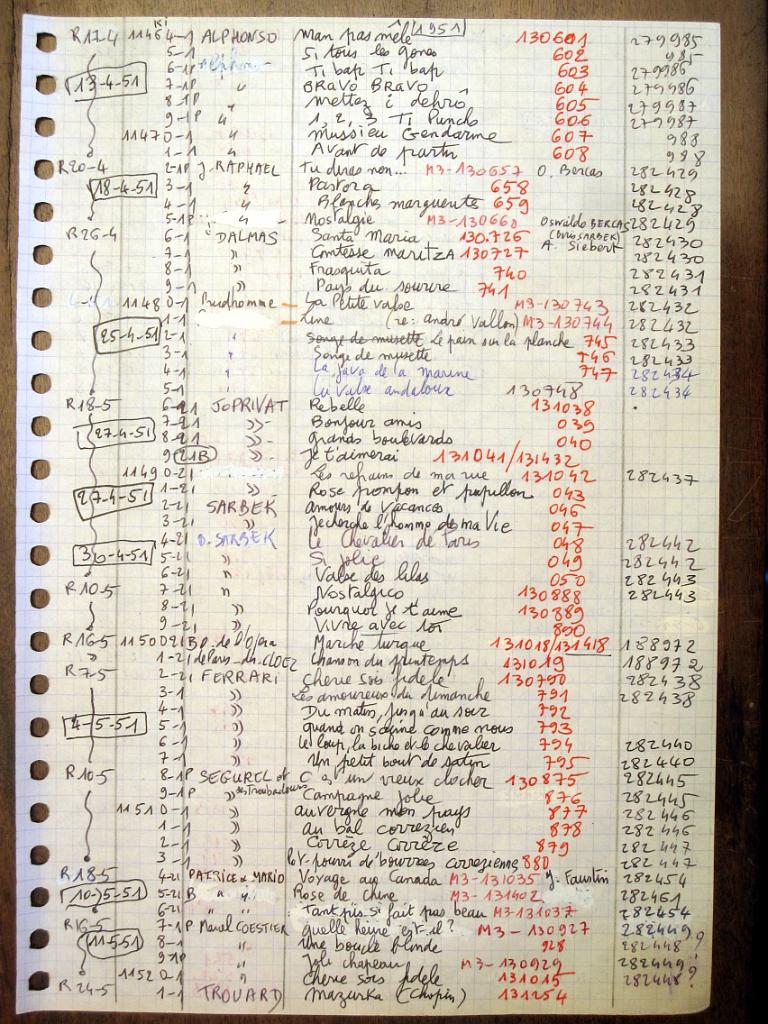 Ki
R12-4 1146 4-1 ALPHONSO Man pas mêlé 1951 130601 279985
5-1 Si tous les gones 602 985
6-1P Alphon- Ti bap Ti bap 603 279986
13-4-51 7-1P " BRAVO BRAVO 604 279986
8-1P " mettez 605 279987
9-1P " 1, 2, 3 Ti Punchs 606 279987
1147 0-1 " Mussieu Gendarme 607 988
1-1 " Avant de partir 608 988
R20-4 2-1P J. RAPHAEL Tu diras non... M3-130657 O. Bercas 282429
18-4-51 3-1 " Pastora 658 282428
4-1 " Blanches marguerite 659 282428
5-1P " Nostalgie M3-130660 Osvaldo BERCAS 282429
R26-4 6-1 " DALMAS Santa Maria 130.726 (Boris SARBEK) 282430
7-1 " Comtesse maritza 130727 A. Siebert 282430
8-1 " Frasquita 740 282431
9-1 " Pays du sourire 741 282431
1148 0-1 Prudhomme La Petite valse M3-130743 282432
1-1 Line (re: andré Vallon) M3-130744 282432
25-4-51 2-1 " Songe de musette Le pain sur la planche 745 282433
3-1 " Songe de musette 746 282433
4-1 " La java de la marine 747 282434
5-1 " La valse andalouse 130748 282434
R18-5 6-21 JO PRIVAT Rebelle 131038 .
7-21 »- Bonjour amis 039
27-4-51 8-21 »- grands boulevards 040
9 21B »- Je t'aimerai 131041/131432
1149 0-21 Les refrains de ma rue 131042 282437
27-4-51 1-21 »- Rose pompon et papillon 043
2-21 SARBEK amours de vacances 046
3-21 » Je cherche l'homme de ma Vie 047
4-21 B. SARBEK Le Chevalier de Paris 048 282442
30-4-51 5-21 » Si jolie 049 282442
6-21 " Valse des lilas 050 282443
R10-5 7-21 " Nostalgico 130888 282443
8-21 » Pourquoi je t'aime 130889
9-21 » Vivre avec toi 890
R16-5 1150 021 Bp. de l'Opera Marche turque 131018/131418 188972
" 1-21 de Paris dir. CLOEZ Chanson du printemps 131019 188972
R7-5 2-21 FERRARI Cherie sois fidele 130790 282438
3-1 » Les amoureux du dimanche 791 282438
4-1 » Du matin, jusqu'au soir 792
4-5-51 5-1 » quand on s'aime comme nous 793
6-1 » Le loup, la biche et le chevalier 794 282440
7-1 » Un petit bout de satin 795 282440
R10-5 8-1P SEGUREL et C'est un vieux clocher 130875 282445
9-1P » ses Troubadours Campagne jolie 876 282445
1151 0-1 » auvergne mon pays 877 282446
1-1 » au bal correzien 878 282446
2-1 » Corrèze Corrèze 879 282447
3-1 » Pot-pourri de bourrees correziennes 880 282447
R18-5 4-21 PATRICE & MARIO Voyage au Canada M3-131035 J. Faustin 282454
10-5-51 5-21 B " " Rose de chine M3-131402 282461
6-21 " " Tant pis si fait pas beau M3-131037 282454
R16-5 7-1P Marcel COESTIER quelle heure est-il? M3-130927 282449
11-5-51 8-1 " Une boucle blonde 928 282448?
9-1P " Joli chapeau M3-130929 282449?
1152 0-1 " cherie sois fidele 131015 282448?
R24-5 1-1 TROUARD Mazurka (Chopin) 131254